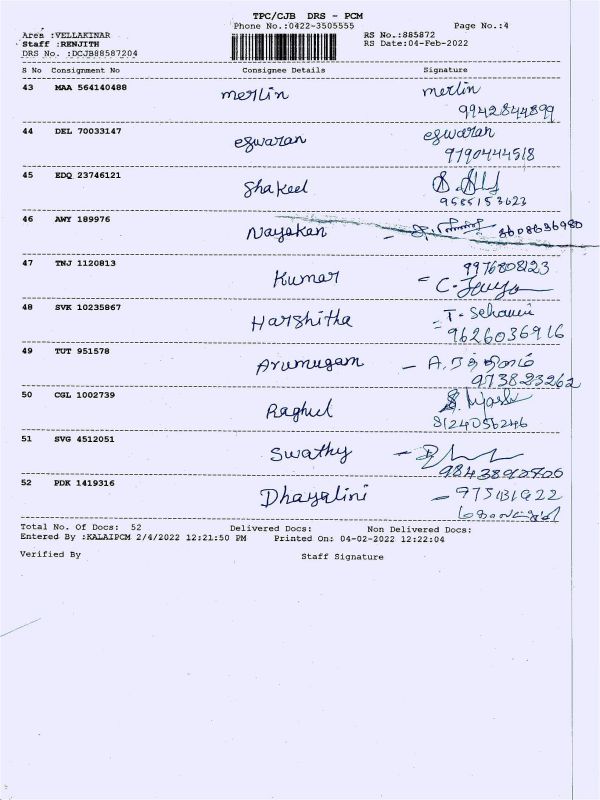 TPC/CJB DRS - PCM
Phone No.:0422-3505555 Page No.:4
Area :VELLAKINAR RS No.:885872
Staff :RENJITH RS Date:04-Feb-2022
DRS No. :DCJB88587204
S No Consignment No Consignee Details Signature
43 MAA 564140488 merlin merlin
9942844899
44 DEL 70033147 eswaran eswaran
9790444518
45 EDQ 23746121 Shakeel
9585153623
46 AWY 189976 Nayakan - 8608636980
47 TNJ 1120813 Kumar 9976808123
48 SVK 10235867 Harshitha
= 9626036916
49 TUT 951578 Arumugam
973823262
50 CGL 1002739 Raghul
8124056246
51 SVG 4512051 Swathy
52 PDK 1419316 Dhayalini
Total No. Of Docs: 52 Delivered Docs: Non Delivered Docs:
Entered By :KALAIPCM 2/4/2022 12:21:50 PM Printed On: 04-02-2022 12:22:04
Verified By Staff Signature